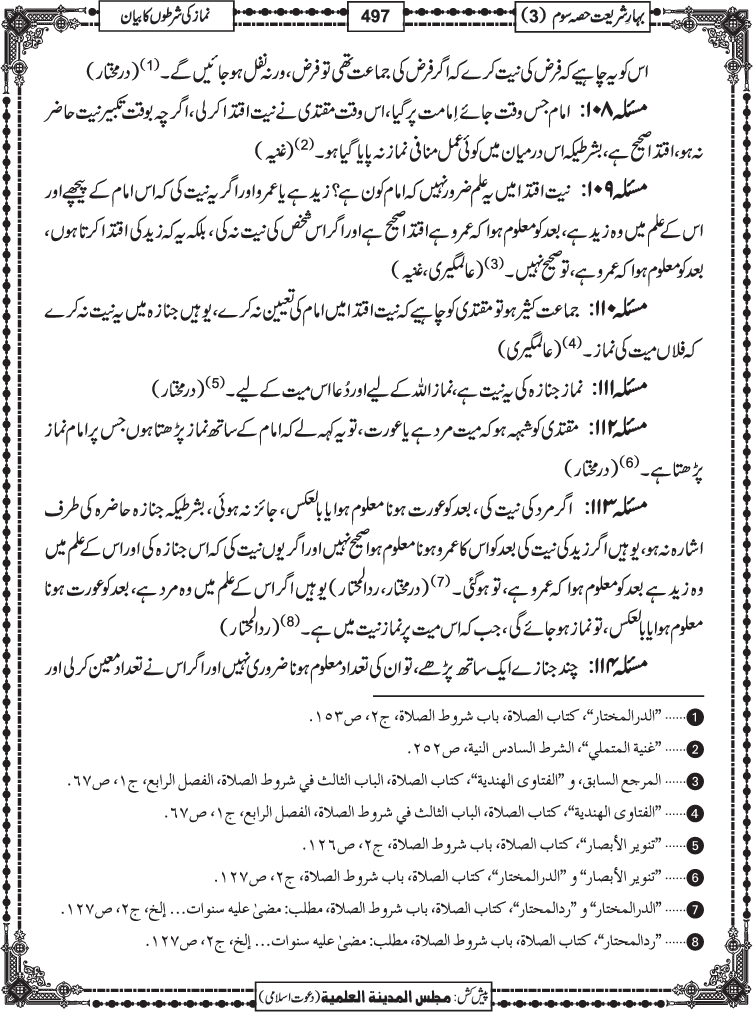 بہارِ شریعت حصہ سوم (3)
497
نماز کی شرطوں کا بیان
اس کو یہ چاہیے کہ فرض کی نیت کرے کہ اگر فرض کی جماعت تھی تو فرض، ورنہ نفل ہو جائیں گے۔(1) (درمختار)
مسئلہ ۱۰۸: امام جس وقت جائے اِمامت پر گیا، اس وقت مقتدی نے نیت اقتدا کر لی، اگرچہ بوقت تکبیر نیت حاضر
نہ ہو، اقتدا صحیح ہے، بشرطیکہ اس درمیان میں کوئی عمل منافی نماز نہ پایا گیا ہو۔(2) (غنیہ)
مسئلہ ۱۰۹: نیت اقتدا میں یہ علم ضرور نہیں کہ امام کون ہے؟ زید ہے یا عمرو اور اگر یہ نیت کی کہ اس امام کے پیچھے اور
اس کے علم میں وہ زید ہے، بعد کو معلوم ہوا کہ عمرو ہے اقتدا صحیح ہے اور اگر اس شخص کی نیت نہ کی، بلکہ یہ کہ زید کی اقتدا کرتا ہوں،
بعد کو معلوم ہوا کہ عمرو ہے، تو صحیح نہیں۔(3) (عالمگیری، غنیہ)
مسئلہ ۱۱۰: جماعت کثیر ہو تو مقتدی کو چاہیے کہ نیت اقتدا میں امام کی تعیین نہ کرے، یوہیں جنازہ میں یہ نیت نہ کرے
کہ فلاں میت کی نماز۔(4) (عالمگیری)
مسئلہ ۱۱۱: نماز جنازہ کی یہ نیت ہے، نماز اللہ کے لیے اور دُعا اس میت کے لیے۔(5) (درمختار)
مسئلہ ۱۱۲: مقتدی کو شبہہ ہو کہ میت مرد ہے یا عورت، تو یہ کہہ لے کہ امام کے ساتھ نماز پڑھتا ہوں جس پر امام نماز
پڑھتا ہے۔(6) (درمختار)
مسئلہ ۱۱۳: اگر مرد کی نیت کی، بعد کو عورت ہونا معلوم ہوا یا بالعکس، جائز نہ ہوئی، بشرطیکہ جنازہ حاضرہ کی طرف
اشارہ نہ ہو، یوہیں اگر زید کی نیت کی بعد کو اس کا عمرو ہونا معلوم ہوا صحیح نہیں اور اگر یوں نیت کی کہ اس جنازہ کی اور اس کے علم میں
وہ زید ہے بعد کو معلوم ہوا کہ عمرو ہے، تو ہوگئی۔(7) (درمختار، ردالمحتار) یوہیں اگر اس کے علم میں وہ مرد ہے، بعد کو عورت ہونا
معلوم ہوا یا بالعکس، تو نماز ہو جائے گی، جب کہ اس میت پر نماز نیت میں ہے۔(8) (ردالمحتار)
مسئلہ ۱۱۴: چند جنازے ایک ساتھ پڑھے، تو ان کی تعداد معلوم ہونا ضروری نہیں اور اگر اس نے تعداد معین کر لی اور
1 ...... ”الدرالمختار“، کتاب الصلاة، باب شروط الصلاة، ج۲، ص۱۵۳.
2 ...... ”غنیة المتملي“، الشرط السادس النیة، ص۲۵۲.
3 ...... المرجع السابق، و ”الفتاوی الهندیة“، کتاب الصلاة، الباب الثالث في شروط الصلاة، الفصل الرابع، ج۱، ص۶۷.
4 ...... ”الفتاوی الهندیة“، کتاب الصلاة، الباب الثالث في شروط الصلاة، الفصل الرابع، ج۱، ص۶۷.
5 ...... ”تنویر الأبصار“، کتاب الصلاة، باب شروط الصلاة، ج۲، ص۱۲۶.
6 ...... ”تنویر الأبصار“ و ”الدرالمختار“، کتاب الصلاة، باب شروط الصلاة، ج۲، ص۱۲۷.
7 ...... ”الدرالمختار“ و ”ردالمحتار“، کتاب الصلاة، باب شروط الصلاة، مطلب: مضیٰ علیه سنوات... إلخ، ج۲، ص۱۲۷.
8 ...... ”ردالمحتار“، کتاب الصلاة، باب شروط الصلاة، مطلب: مضیٰ علیه سنوات... إلخ، ج۲، ص۱۲۷.
پیش کش: مجلس المدينة العلمية (دعوت اسلامی)